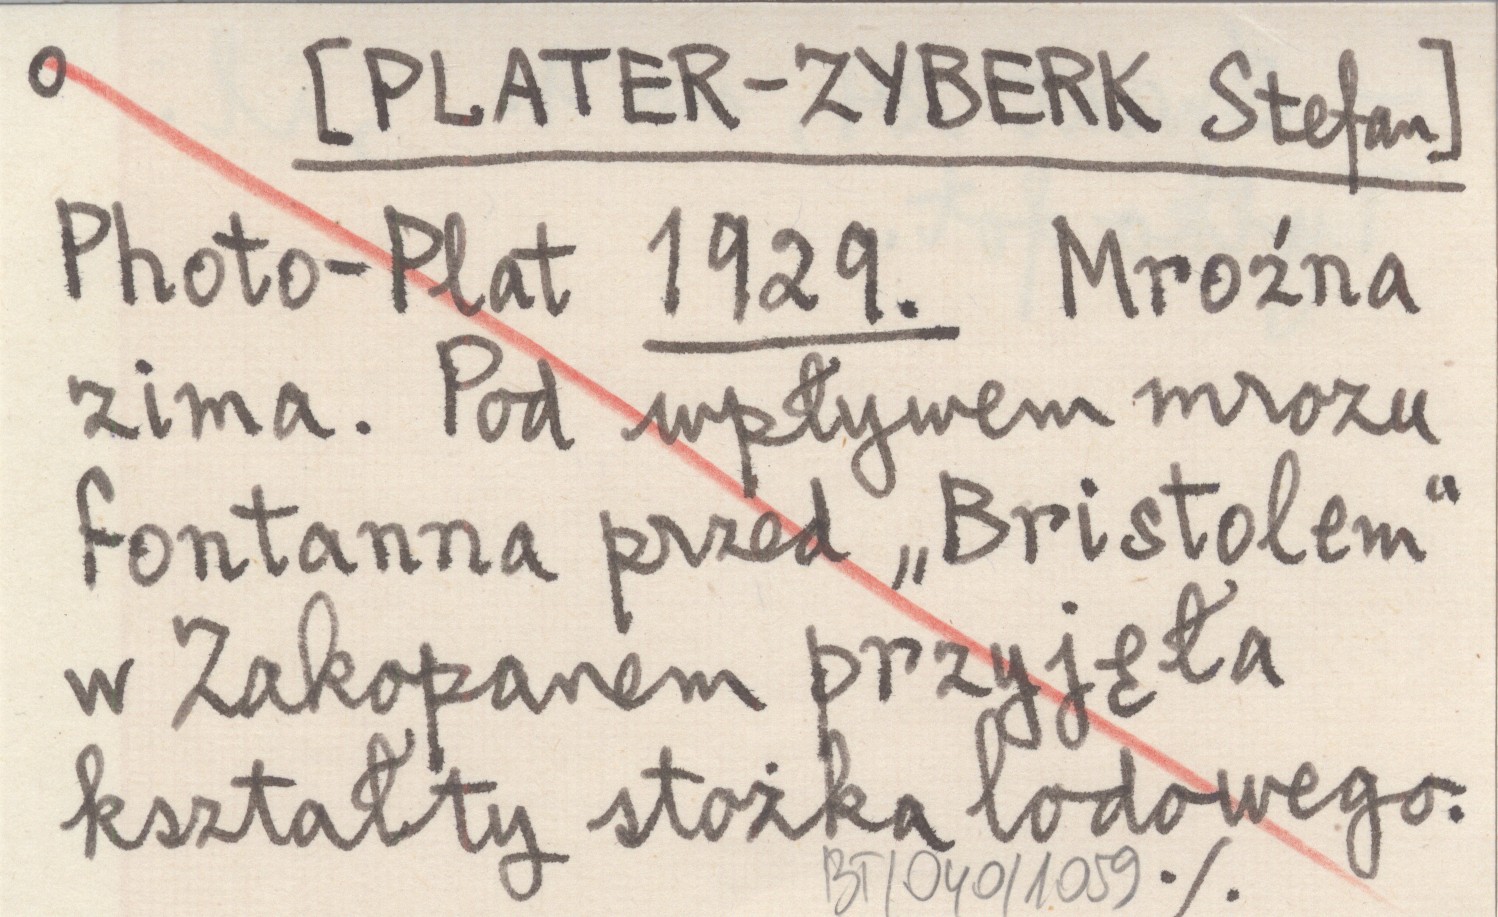 o [PLATER-ZYBERK Stefan]
Photo-Plat 1929. Mroźna
zima. Pod wpływem mrozu
fontanna przed „Bristolem“
w Zakopanem przyjęła
kształty stożka lodowego.
BT/040/1059 ./.